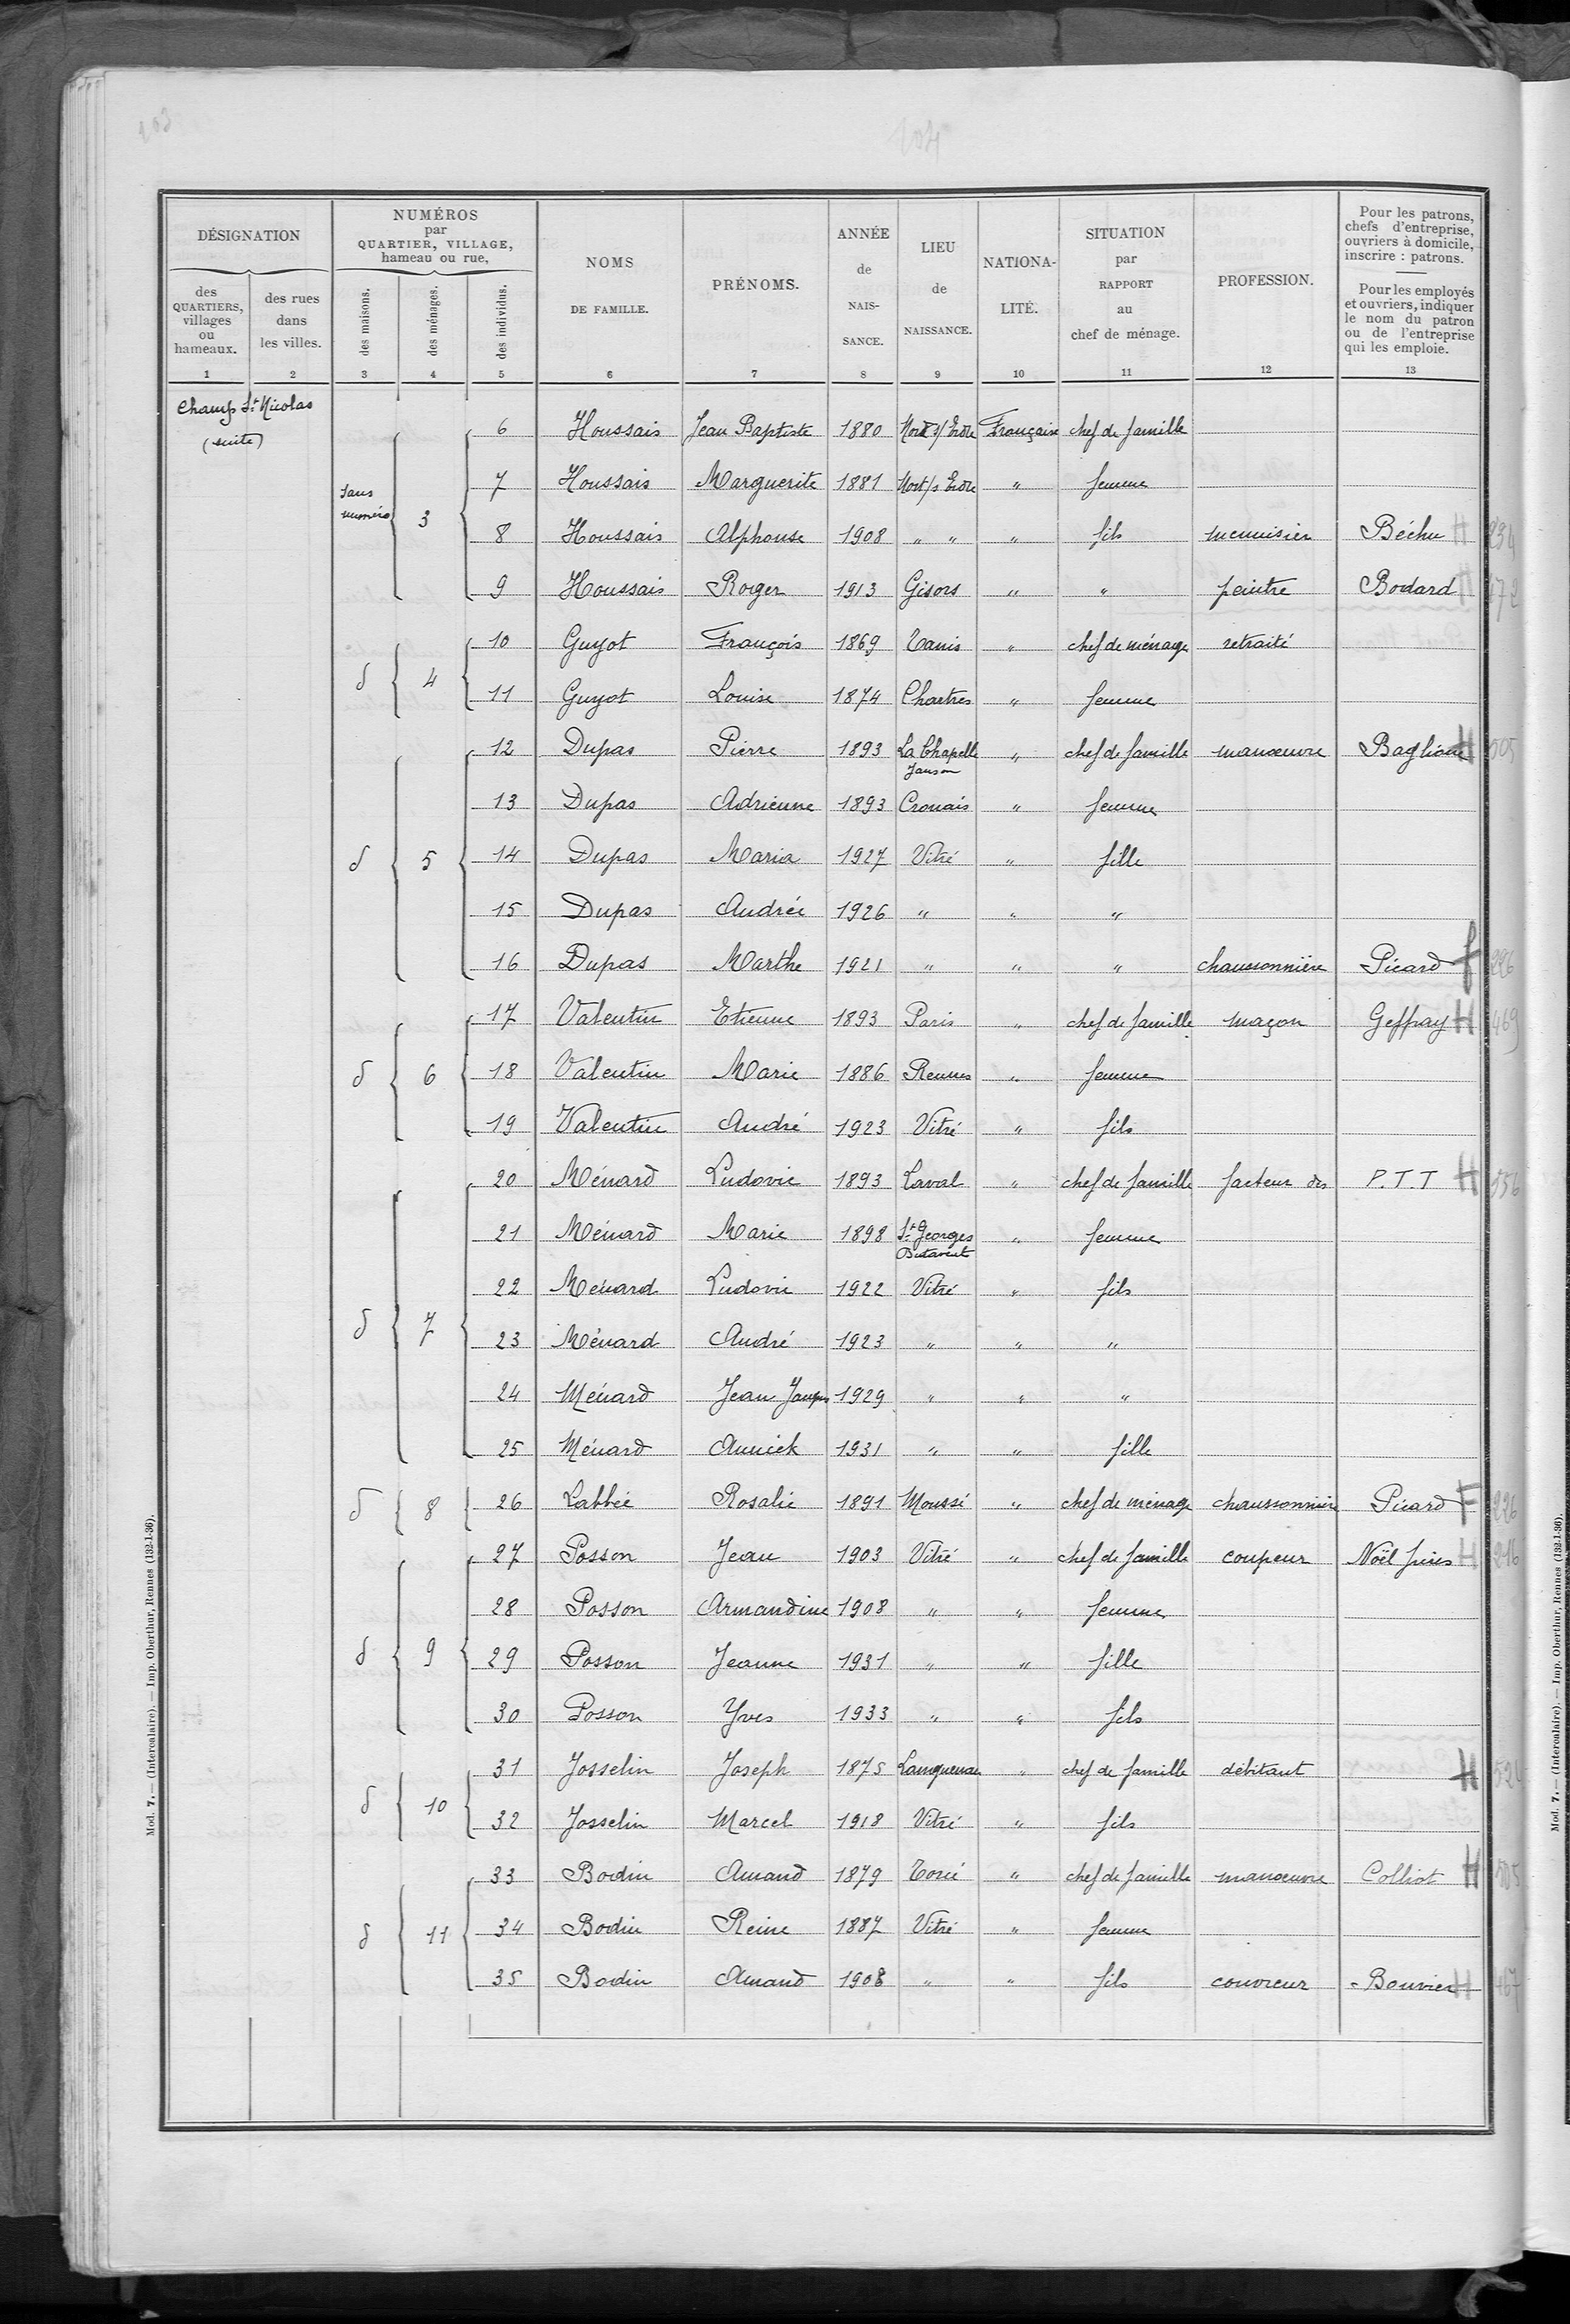 104
DÉSIGNATION
NUMÉROS
par
QUARTIER, VILLAGE,
hameau ou rue,
des
QUARTIERS,
villages
ou
hameaux.
des rues
dans
les villes.
des maisons.
des ménages.
des individus.
NOMS
DE FAMILLE.
PRÉNOMS.
ANNÉE
de
NAIS-
SANCE.
LIEU
de
NAISSANCE.
NATIONA-
LITÉ.
SITUATION
par
RAPPORT
au
chef de ménage.
PROFESSION.
Pour les patrons,
chefs d'entreprise,
ouvriers à domicile,
inscrire : patrons.
Pour les employés
et ouvriers, indiquer
le nom du patron
ou de l'entreprise
qui les emploie.
1 2 3 4 5 6 7 8 9 10 11 12 13
Champ St Nicolas
(suite)
6 Houssais Jean Baptiste 1880 Nort s/ Erdre Française chef de famille
7 Houssais Marguerite 1881 Nort/s Erdre " femme
sans
numéro 3
8 Houssais Alphonse 1908 " " " fils menuisier Béchu H 234
9 Houssais Roger 1913 Gisors " " peintre Bodard H 172
10 Guyot François 1869 Tanis " chef de ménage retraité
d 4
11 Guyot Louise 1874 Chartres " femme
12 Dupas Pierre 1893 La Chapelle
Janson " chef de famille manœuvre Baglione H 505
13 Dupas Adrienne 1893 Crouais " femme
d 5 14 Dupas Maria 1927 Vitré " fille
15 Dupas Andrée 1926 " " "
16 Dupas Marthe 1921 " " " chaussonnière Picard f 226
17 Valentin Etienne 1893 Paris " chef de famille maçon Geffray H 469
d 6 18 Valentin Marie 1886 Rennes " femme
19 Valentin André 1923 Vitré " fils
20 Ménard Ludovic 1893 Laval " chef de famille facteur des P.T.T H 556
21 Ménard Marie 1898 St Georges
Butavent " femme
22 Ménard Ludovic 1922 Vitré " fils
d 7 23 Ménard André 1923 " " "
24 Ménard Jean Jacques 1929 " " "
25 Ménard Annick 1931 " " fille
d 8 26 Labbée Rosalie 1891 Moussé " chef de ménage chaussonnière Picard F 226
27 Posson Jean 1903 Vitré " chef de famille coupeur Noël frères H 216
28 Posson Armandine 1908 " " femme
d 9 29 Posson Jeanne 1931 " " fille
30 Posson Yves 1933 " " fils
31 Josselin Joseph 1875 " chef de famille débitant H
d 10
32 Josselin Marcel 1918 Vitré " fils
33 Bodin Amand 1879 Torcé " chef de famille manœuvre Colliot H 505
d 11 34 Bodin Reine 1887 Vitré " femme
35 Bodin Amand 1908 " " fils couvreur Bouvier H 467
Mod. 7. — (Intercalaire). — Imp. Oberthur, Rennes (132-1-36).
Mod. 7. — (Intercalaire). — Imp. Oberthur, Rennes (132-1-36).